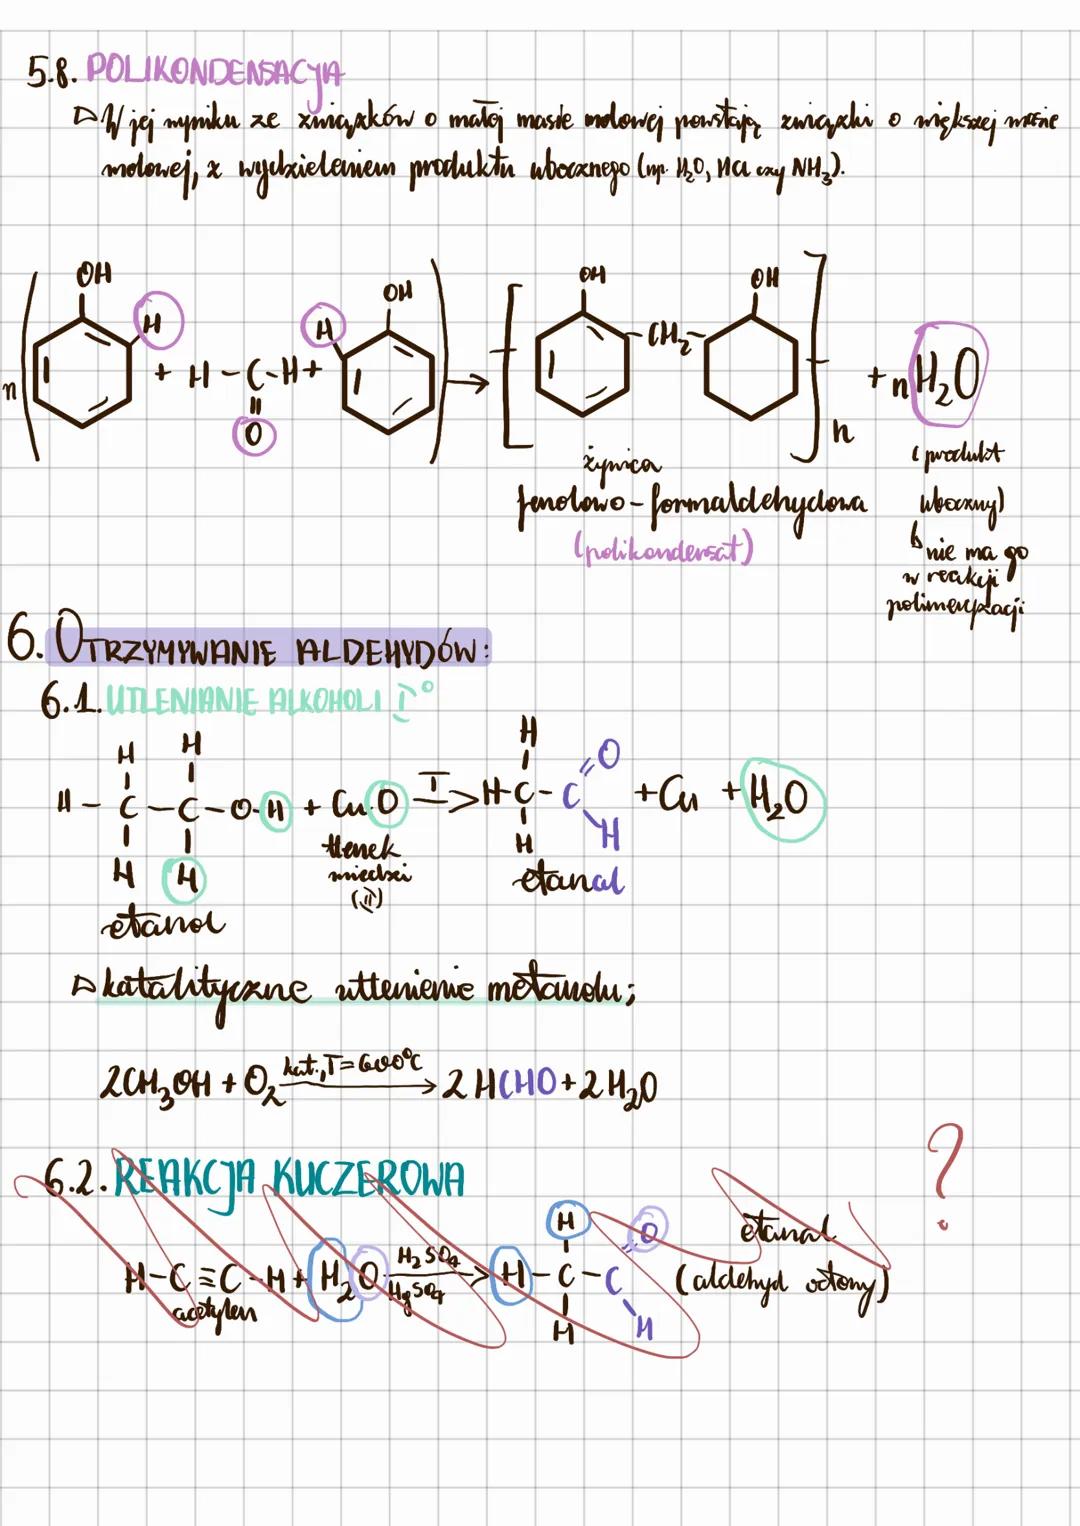 5.8. POLIKONDENSACJA
▷ W jej wyniku ze związków o małej masie molowej powstają związki o większej masie
molowej, z wydzieleniem produktu ubocznego (np. H₂O, HCl czy NH₃).
OH OH OH OH
H H
n + H-C-H+ → -CH₂- + nH₂O
O
n
żywica
fenolowo-formaldehydowa
(polikondensat)
(produkt
uboczny)
↳ nie ma go
w reakcji
polimeryzacji
6. OTRZYMYWANIE ALDEHYDÓW:
6.1. UTLENIANIE ALKOHOLI I°
H H H O
H - C - C - O - H + CuO T> H-C-C +Cu + H₂O
H H H H
tlenek
miedzi
(II)
etanal
etanol
▷ katalityczne utlenienie metanolu;
2CH₃OH + O₂ kat., T=600°C → 2HCHO + 2H₂O
?
6.2. REAKCJA KUCZEROWA
H O etanal
H-C≡C-H + H₂O H₂SO₄ HgSO₄ → H-C-C (aldehyd octowy)
acetylen
H H